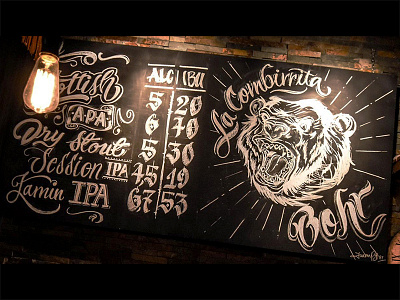 Scottish
A.P.A
Dry Stout
Session IPA
Lamin IPA
ALC | IBU
5 20
6 70
5 30
45 19
67 53
La Combirrita
Bohr